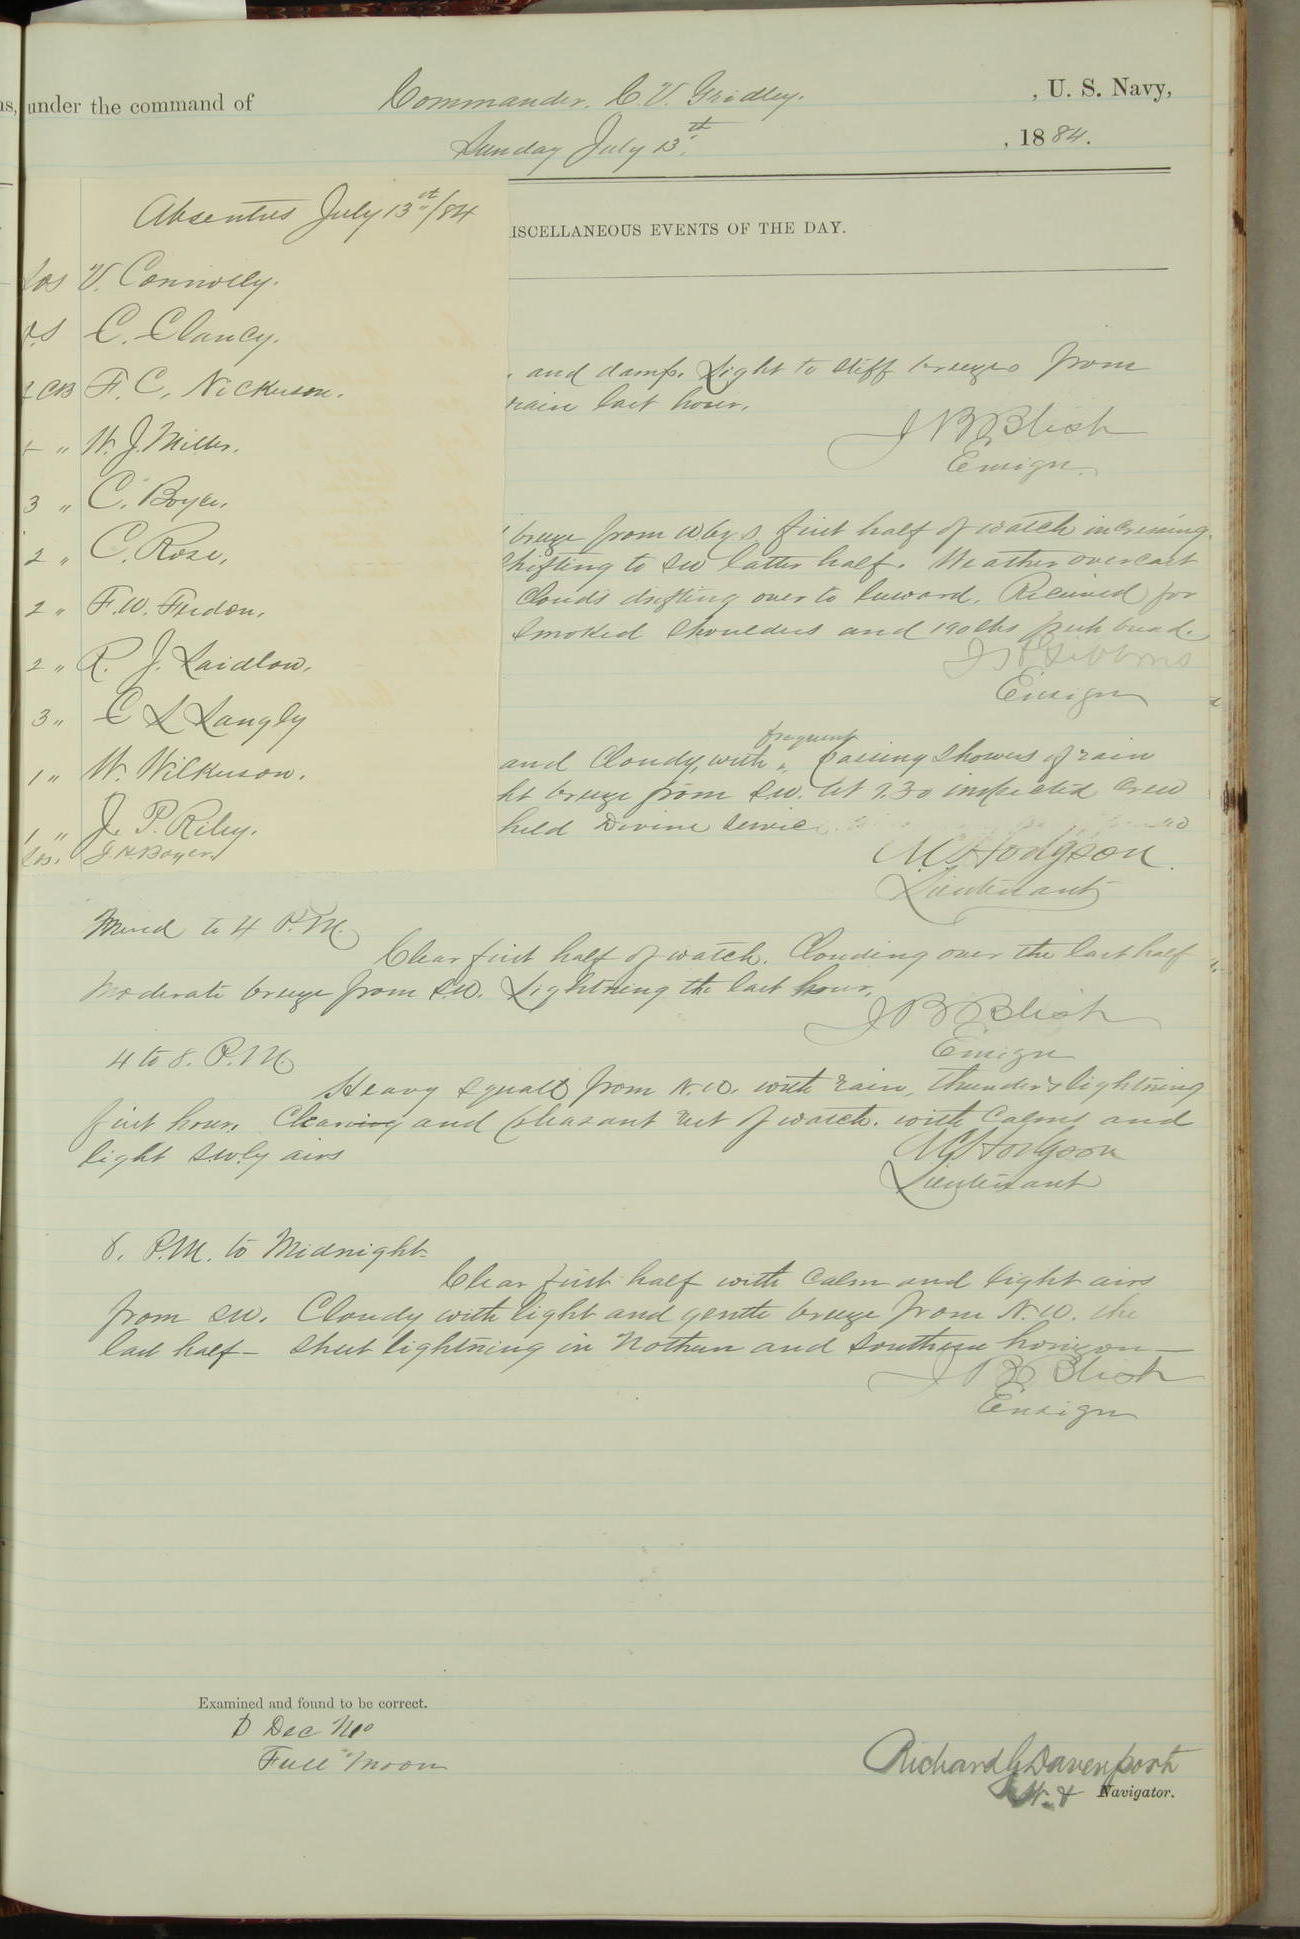 ns, under the command of Commander. C. V. Gridley. , U. S. Navy,
Sunday July 13th. , 1884.
Absentees July 13th/84
ISCELLANEOUS EVENTS OF THE DAY.
Los V. Connolly.
O.S C. Clancy.
2 CB F. C. Nickerson.
" W. J. Miller.
3 " C. Boyer.
2 " C. Rose.
2 " F. W. Ferdon.
2 " R. J. Laidlow.
3 " C L Langly
1 " W. Wilkerson.
1 " J. P. Riley.
Los. J. H. Boyer.
. and damp. Light to stiff breezes from
rain last hour.
J B Blish
Ensign.
breeze from W by S first half of watch increasing.
Shifting to SW latter half. Weather overcast
Clouds drifting over to leward. Received for
Smoked Shoulders and 190 lbs fresh bread.
J H Gibbons
Ensign
and Cloudy, with frequent passing showers of rain
ht breeze from S.W. At 9.30 inspected crew
held Divine Service
M Hodgson.
Lieutenant
Mered to 4 P.M.
Clear first half of watch. Clouding over the last half
Moderate breeze from S.W. Lightning the last hour.
J B Blish
Ensign
4 to 8. P.M.
Heavy squall from N.W. with rain, thunder & lightning
first hour. Clearing and pleasant rest of watch. with Calms and
light SWly airs
M Hodgson
Lieutenant
8. P.M. to Midnight-
Clear first half with Calm and light airs
from SW. Cloudy with light and gentle breeze from N.W. the
last half- Sheet lightning in Nothern and Southern horizon-
J B Blish
Ensign
Examined and found to be correct.
D Dec No
Full Moon
Richard G Davenport
Lt. & Navigator.